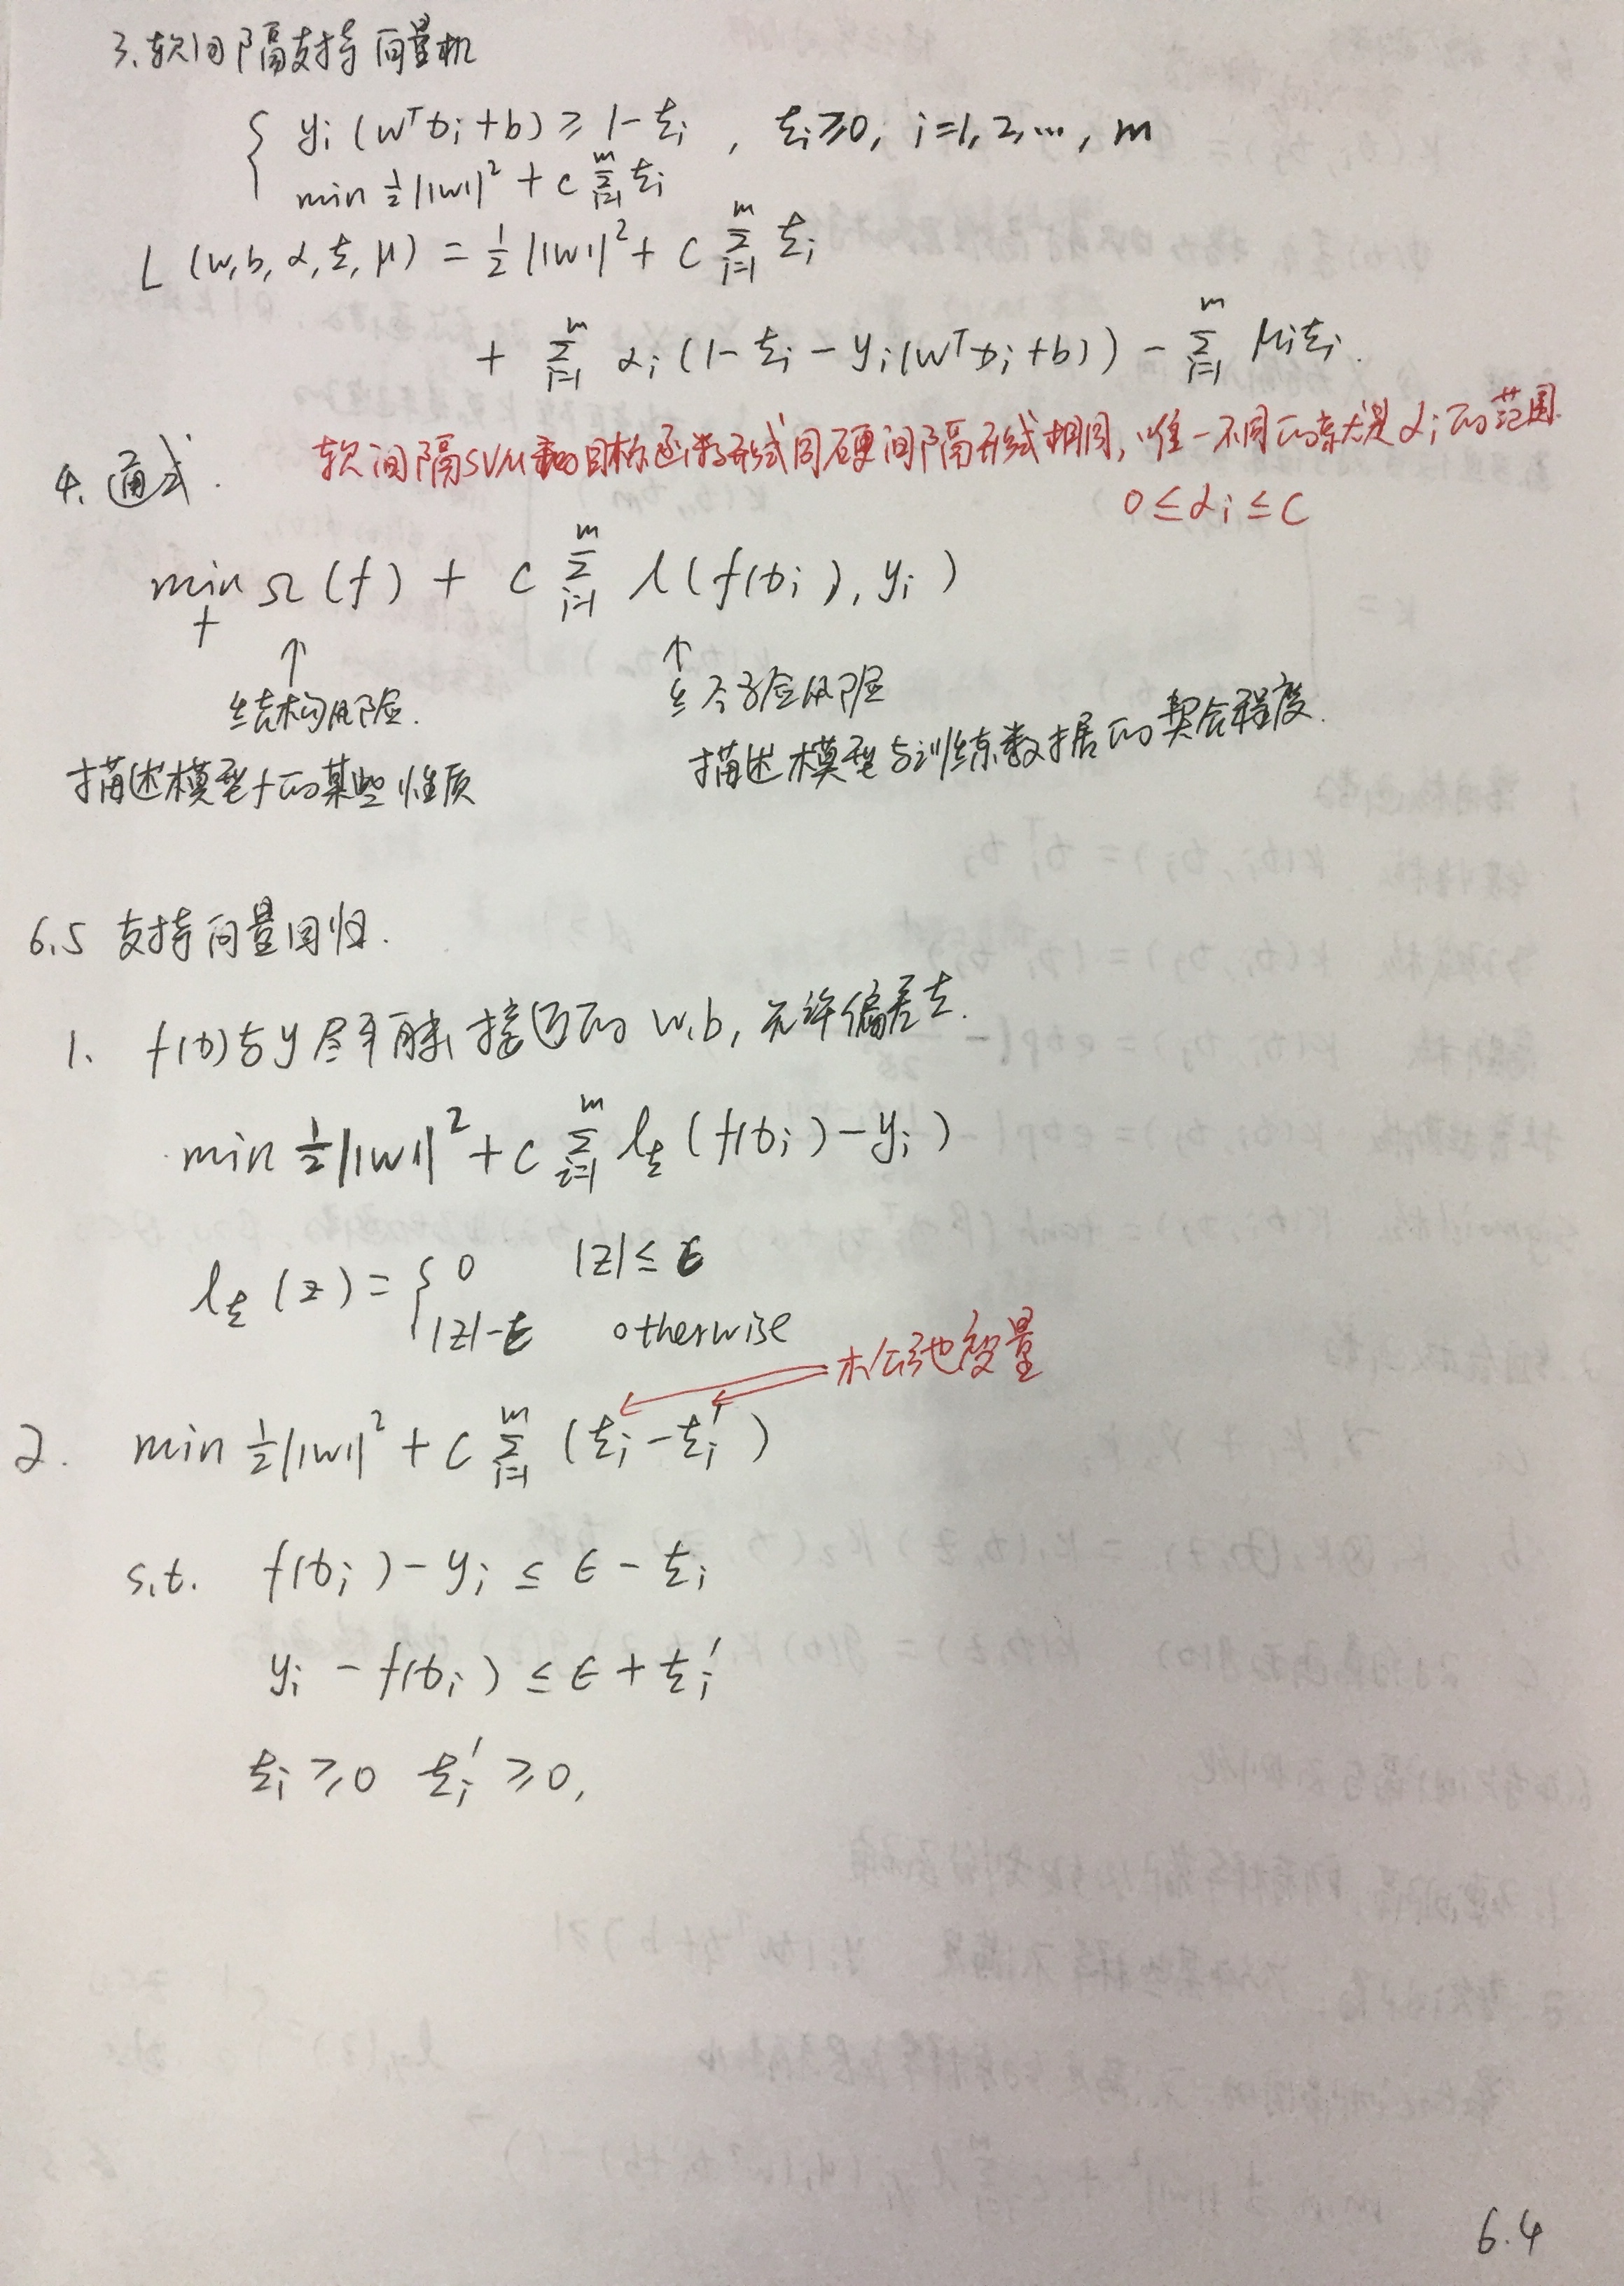 3、软间隔支持向量机
{ yᵢ(wᵀxᵢ+b) ≥ 1-ξᵢ , ξᵢ≥0, i=1,2,…, m
min ½||w||² + C Σᵢ₌₁ᵐ ξᵢ
L (w,b,α,ξ,μ) = ½||w||² + C Σᵢ₌₁ᵐ ξᵢ
+ Σᵢ₌₁ᵐ αᵢ(1-ξᵢ-yᵢ(wᵀxᵢ+b)) - Σᵢ₌₁ᵐ μᵢξᵢ.
软间隔SVM的目标函数形式同硬间隔形式相同,唯一不同的就是αᵢ的范围.
0≤αᵢ≤C
4、通式.
min_f Ω(f) + C Σᵢ₌₁ᵐ l(f(xᵢ), yᵢ)
↑ ↑
结构风险. 经验风险
描述模型f的某些性质 描述模型与训练数据的契合程度.
6.5 支持向量回归.
1、 f(x)与y尽可能接近的 w,b, 允许偏差ξ.
min ½||w||² + C Σᵢ₌₁ᵐ l_ξ(f(xᵢ)-yᵢ)
l_ξ(z)= { 0 |z|≤ϵ
|z|-ϵ otherwise
松弛变量
2. min ½||w||² + C Σᵢ₌₁ᵐ (ξᵢ-ξᵢ′)
s.t. f(xᵢ)-yᵢ ≤ ϵ-ξᵢ
yᵢ-f(xᵢ) ≤ ϵ+ξᵢ′
ξᵢ≥0 ξᵢ′≥0,
6.4